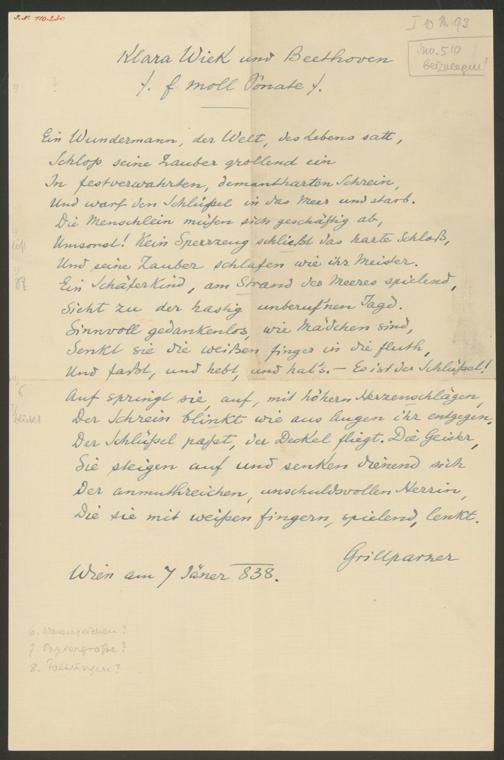 J.N. 110.230
I N 93
no. 510
beizulegen!
Klara Wiek und Beethoven
/. f moll Sonate /.
Ein Wundermann, der Welt, des Lebens satt,
Schloß seine Zauber grollend ein
In festverwahrten, demantharten Schrein,
Und warf den Schlüßel in das Meer und starb.
Die Menschlein müßen sich geschäftig ab,
Umsonst! Kein Sperrzeug schließt das harte Schloß,
Und seine Zauber schlafen wie ihr Meister.
Ein Schäferkind, am Strand des Meeres spielend,
Sieht zu der hastig unberuf'nen Jagd.
Sinnvoll gedankenlos, wie Mädchen sind,
Senkt sie die weißen Finger in die Fluth,
Und faßt, und hebt, und hat's. – Es ist der Schlüßel!
Auf springt sie, auf, mit höhern Herzenschlägen,
Der Schrein blinkt wie aus Augen ihr entgegen,
Der Schlüßel paßt, der Deckel fliegt. Die Geister,
Sie steigen auf und senken dienend sich
Der anmuthreichen, unschuldsvollen Herrin,
Die sie mit weißen Fingern, spielend, lenkt.
Grillparzer
Wien am 7 Jäner 838.
6. Wasserzeichen?
7. Papiergröße?
8. Faltungen?